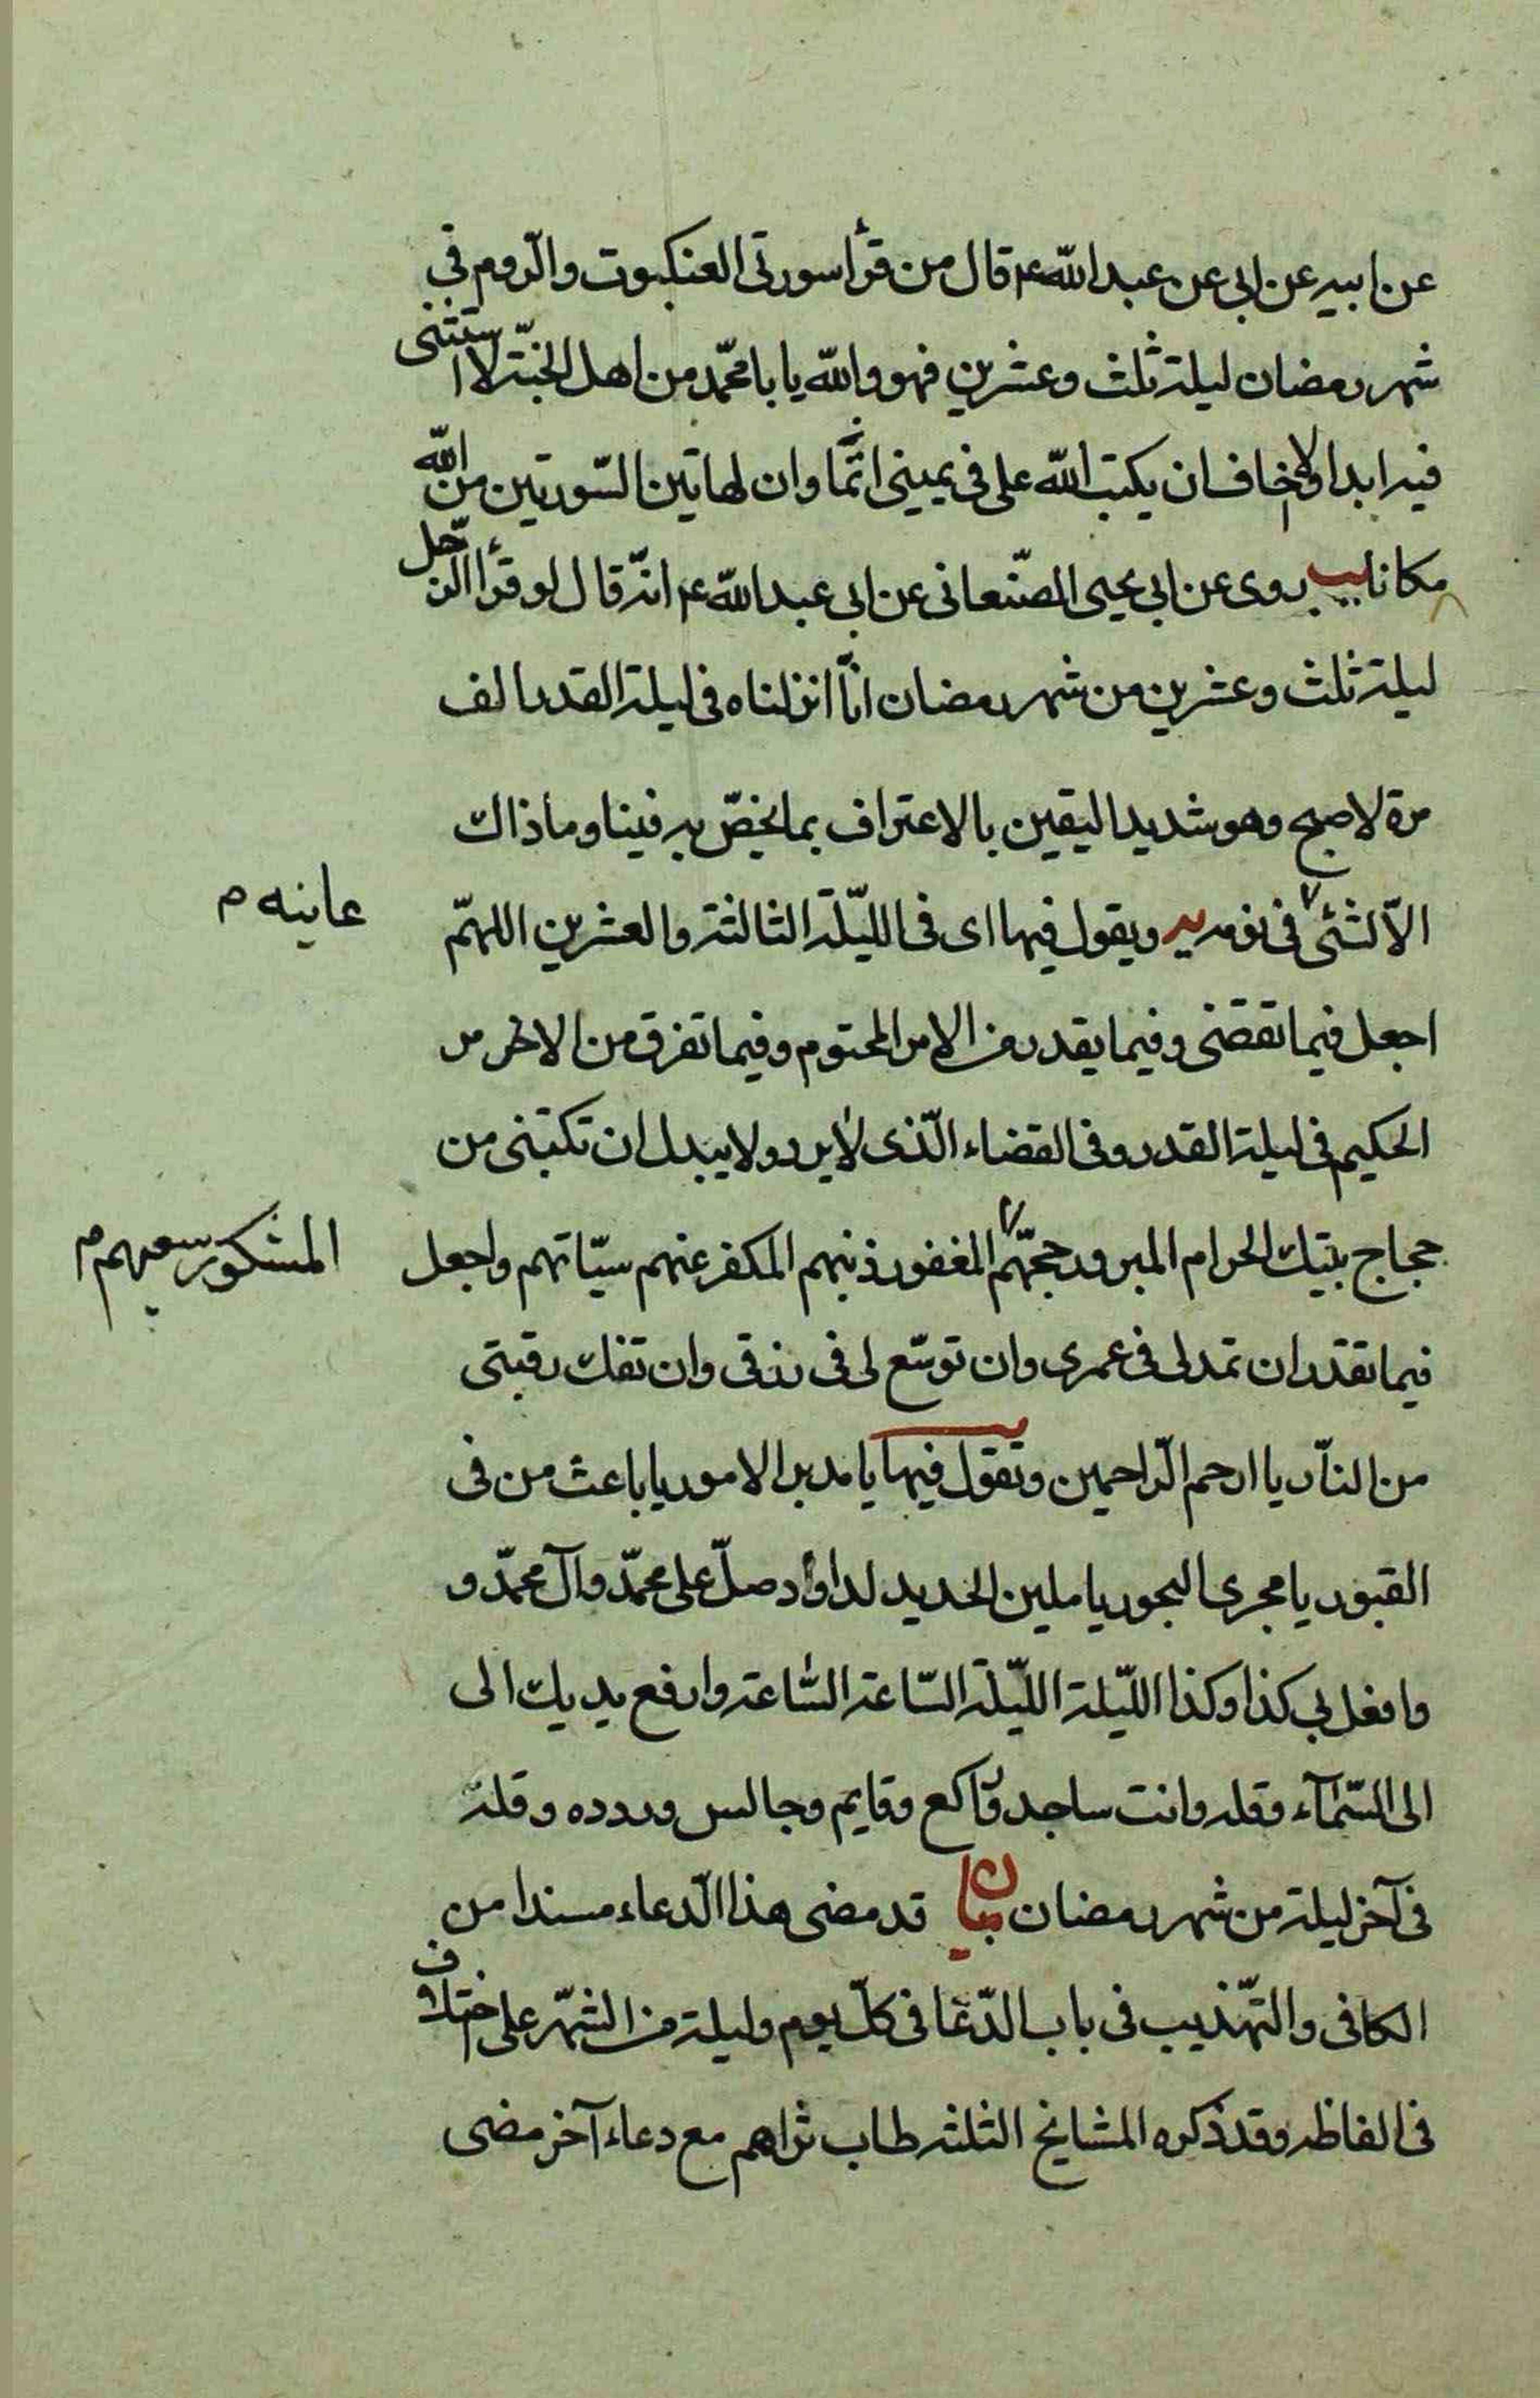 عن ابيه عن ابى عن عبدالله ع قال من قرأ سورتى العنكبوت والرّوم فى
شهر رمضان ليلة ثلث وعشرين فهو والله يا با محمّد من اهل الجنّة لا استثنى
فيه ابدا ولا اخاف ان يكتب الله على فى يمينى اثما وان لهاتين السّورتين من الله
مكانا يب روى عن ابى يحيى الصّنعانى عن ابى عبدالله ع انّه قال لو قرأ الرّجل
ليلة ثلث وعشرين من شهر رمضان انّا انزلناه فى ليلة القدر الف
مرة لاصبح وهو شديد اليقين بالاعتراف بما يخصّ به فينا وما ذاك
الاّ لشئى فى نومه يه ويقول فيها اى فى اللّيلة الثالثة والعشرين اللهمّ
عاينه م
اجعل فيما تقضى وفيما يقدر من الامر المحتوم وفيما تفرق من الامر
الحكيم فى ليلة القدر وفى القضاء الّذى لا يرد ولا يبدل ان تكتبنى من
حجاج بيتك الحرام المبرور حجّهم المغفور ذنبهم المكفر عنهم سيّاتهم واجعل
المشكور سعيهم م
فيما تقدر ان تمد لى فى عمرى وان توسّع لى فى رزقى وان تفك رقبتى
من النّار يا ارحم الرّاحمين وتقول فيها يا مدبر الامور يا باعث من فى
القبور يا مجرى البحور يا ملين الحديد لداود صلّ على محمّد وآل محمّد و
وافعل بى كذا وكذا اللّيلة اللّيلة السّاعة السّاعة وارفع يديك الى
الى السّمآء وقله وانت ساجد وراكع وقايم وجالس وردده وقله
فى آخر ليلة من شهر رمضان بيان قد مضى هذا الدّعاء مسندا من
الكافى والتّهذيب فى باب الدّعا فى كلّ يوم وليلة من الشّهر على اختلاف
فى الفاظه وقد ذكره المشايخ الثلثه طاب ثراهم مع دعاء آخر مضى